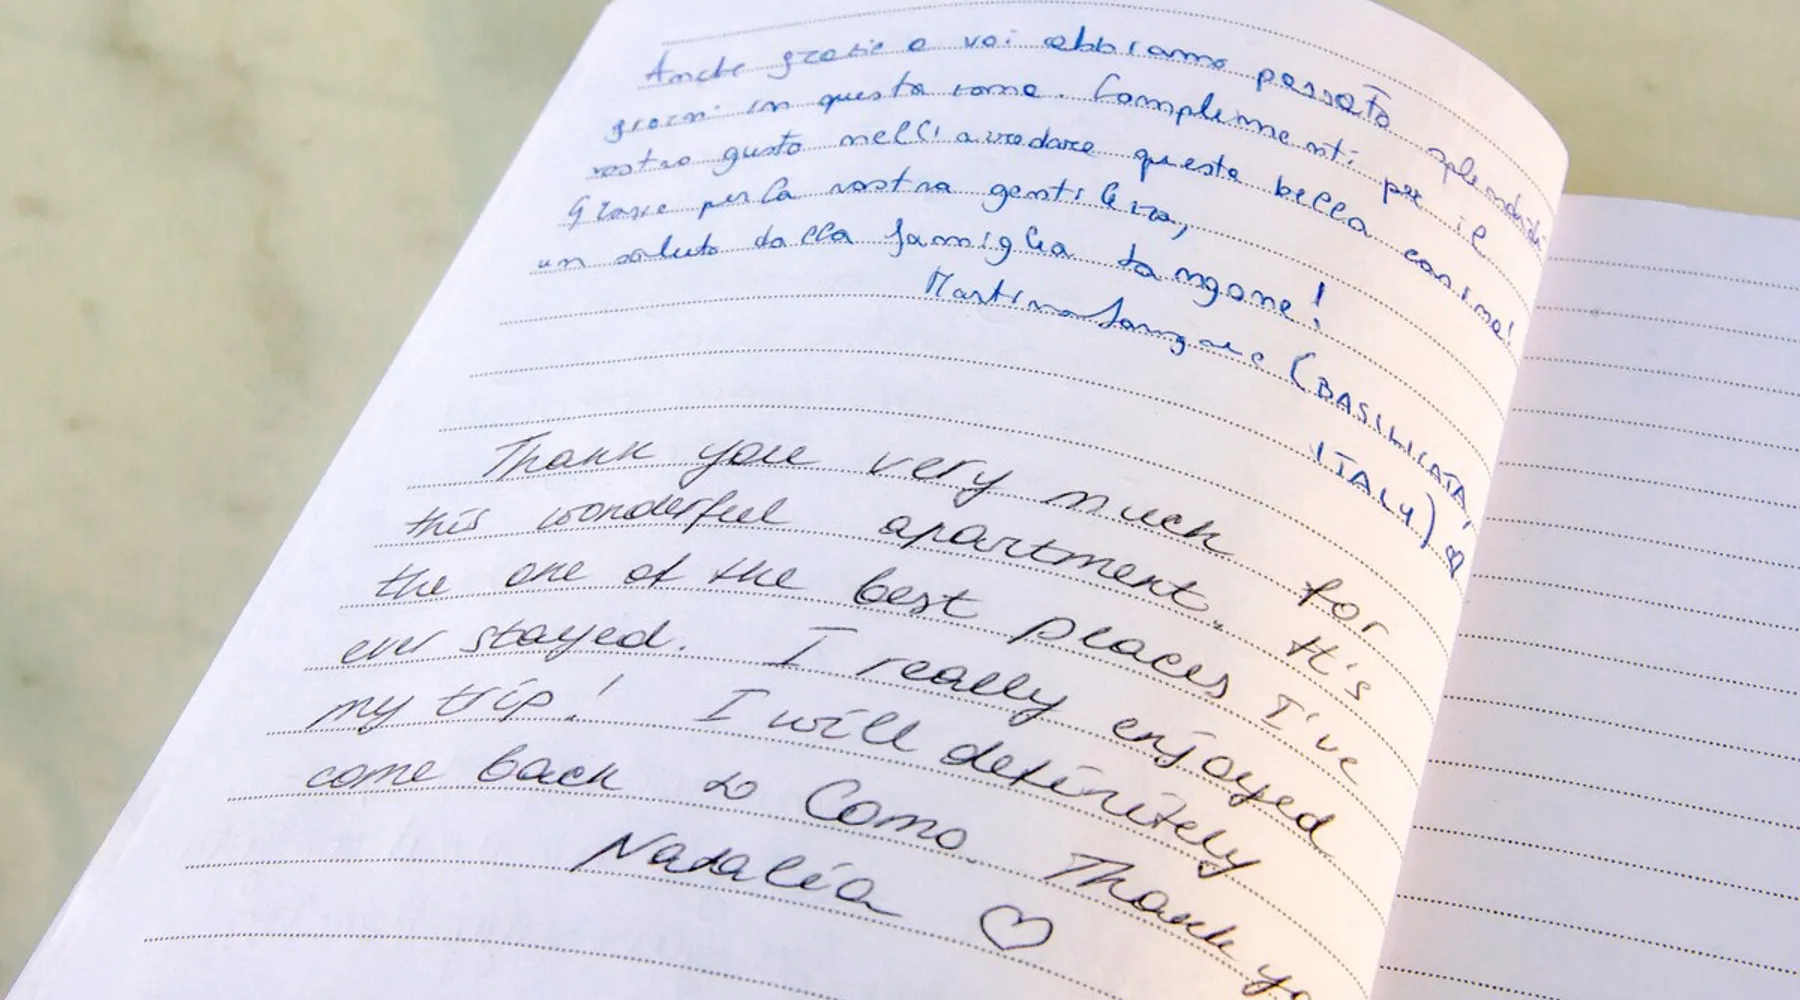 Anche grazie a voi abbiamo passato splendidi
giorni in questa
vostro gusto nell'arredare questa bella casina!
Grazie per la vostra gentilezza,
un saluto dalla famiglia Tangone!
Martina Tangone (BASILICATA,
ITALY) ♡
Thank you very much for
this wonderful apartment. It's
the one of the best places I've
ever stayed. I really enjoyed
my trip! I will definitely
come back to Como. Thank yo
Natalia ♡